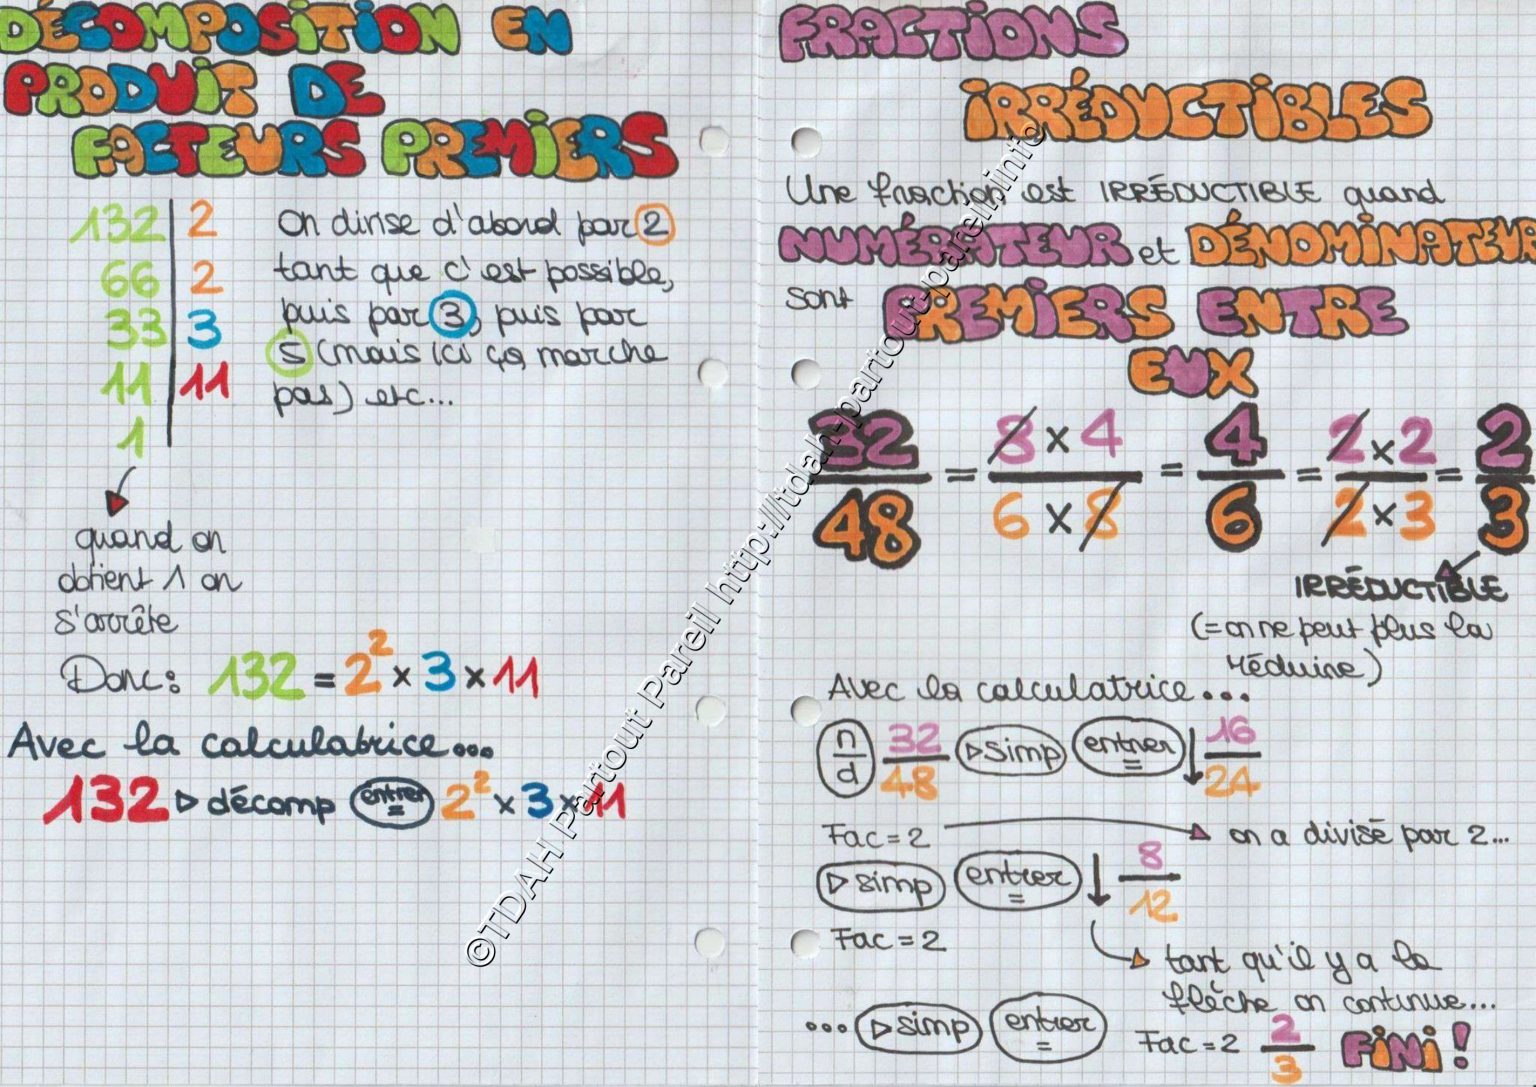 DÉCOMPOSITION EN
PRODUIT DE
FACTEURS PREMIERS
132 | 2
66 | 2
33 | 3
11 | 11
1
On divise d'abord par 2
tant que c'est possible,
puis par 3, puis par
5 (mais ici ça marche
pas) etc...
quand on
obtient 1 on
s'arrête
Donc: 132 = 2² × 3 × 11
Avec la calculatrice...
132 ▷ décomp entrer = 2² × 3 × 11
FRACTIONS
IRRÉDUCTIBLES
Une fraction est IRRÉDUCTIBLE quand
NUMÉRATEUR et DÉNOMINATEUR
sont PREMIERS ENTRE
EUX
32/48 = 8 × 4/6 × 8 = 4/6 = 2 × 2/2 × 3 = 2/3
IRRÉDUCTIBLE
(= on ne peut plus la
réduire)
Avec la calculatrice...
n/d 32/48 ▷ simp entrer = ↓ 16/24
Fac = 2 → on a divisé par 2...
▷ simp entrer = ↓ 8/12
Fac = 2
tant qu'il y a la
flèche on continue...
... ▷ simp entrer = Fac = 2 2/3 FINI !
©TDAH Partout Pareil http://tdah-partout-pareil.info